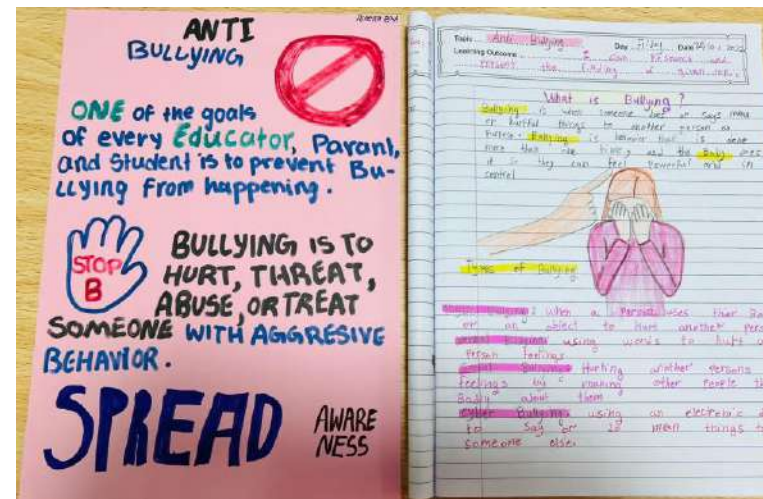 ANTI
BULLYING
ONE of the goals
of every Educator, Parant,
and Student is to prevent Bu-
llying From happening.
STOP
B
BULLYING IS TO
HURT, THREAT,
ABUSE, OR TREAT
SOMEONE WITH AGGRESIVE
BEHAVIOR.
SPREAD
AWARE
NESS
Topic Anti Bullying Day Friday Date
Learning Outcome I can research and
present the finding a given
What is Bullying?
Bullying is when someone does or says mean
or hurtful things to another person on
Bullying is behavior that is done
more than one time, and the Bully does
it so they can feel powerful and in
control
Types of Bullying
when a Person uses thier
or an object to Hurt another Pers
using words to hurt
Person feelings
Hurting another persons
feelings by making other People th
Badly about them
Cyber Bullying using an electronic
to say or mean things t
someone else.